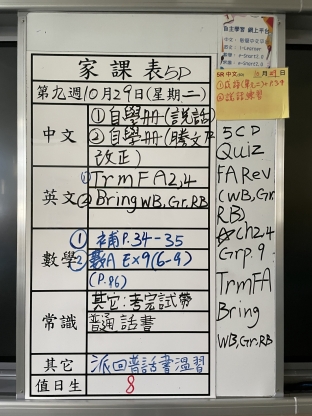 家課表5D
第九週10月29日(星期二)
中文
①自學冊(說話)
②自學冊(騰文及
改正)
英文
①TrmFA2,4
②Bring WB,Gr.RB
數學
①補P.34-35
②數A Ex9(6-9)
(P.96)
常識
其它:考完試帶
普通話書
其它
派回普話書溫習
值日生
8
自主學習 網上平台
5R 中文
5CD
Quiz
FA Rev
(WB,Gr.
RB)
☆Ch2.4
Grp.9
TrmFA
Bring
WB,Gr.RB